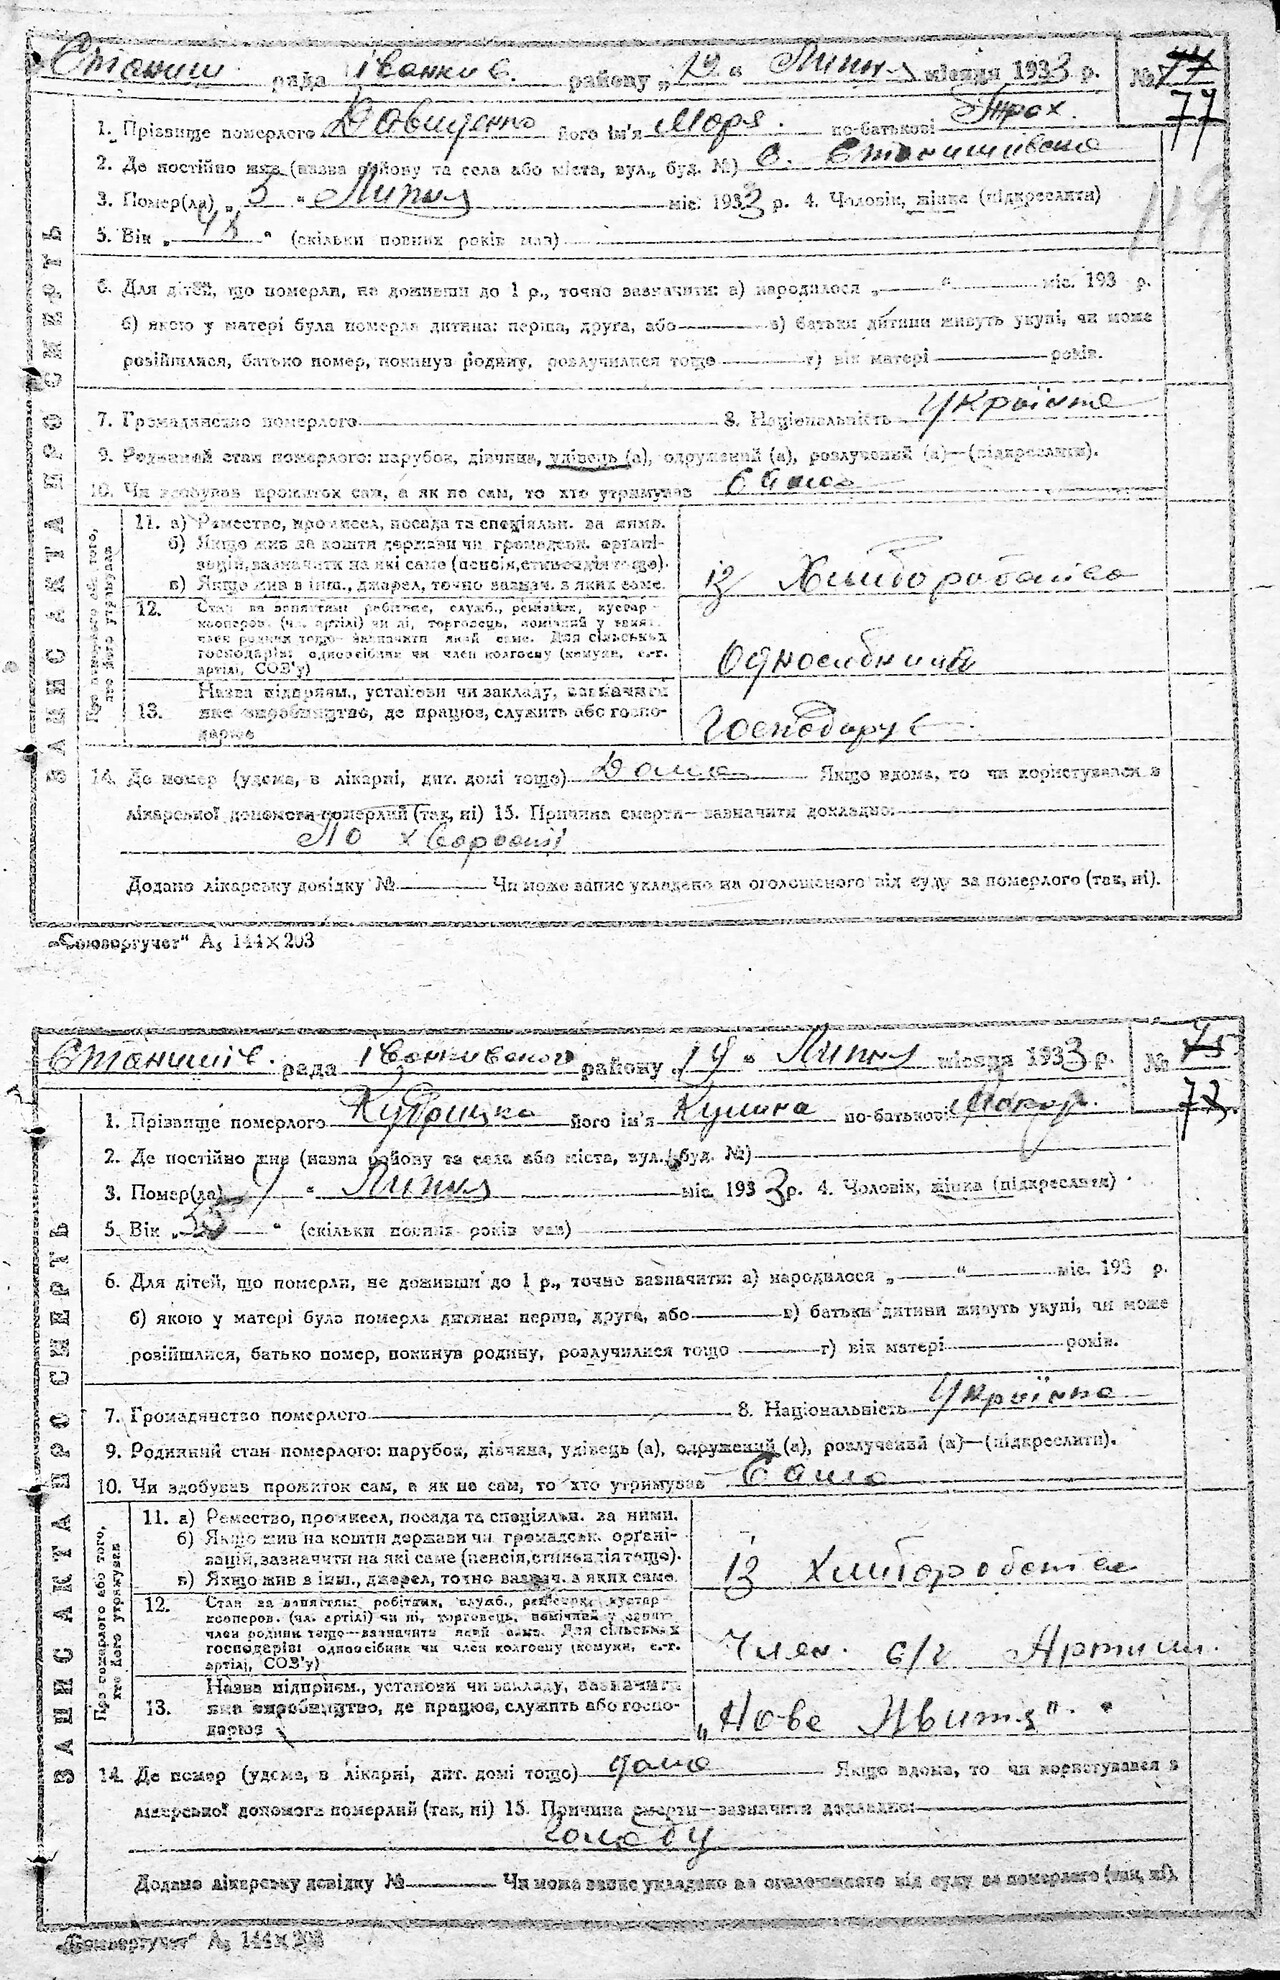 Станиш рада Іванків. району „19“ Липня місяця 1933 р. № 77
ЗАПИС АКТА ПРО СМЕРТЬ
1. Прізвище померлого Давиденко його ім'я Марія. по-батькові Трох.
2. Де постійно жив (назва району та села або міста, вул., буд. №) с. Станишівка
3. Помер(ла) „5“ Липня міс. 1933 р. 4. Чоловік, жінка (підкреслити)
5. Вік „48“ (скільки повних років мав)
6. Для дітей, що померли, не доживши до 1 р., точно зазначити: а) народилося „ “ міс. 193 р.
б) якою у матері була померла дитина: перша, друга, або в) батьки дитини живуть укупі, чи може
розійшлися, батько помер, покинув родину, розлучилися тощо г) вік матері років.
7. Громадянство померлого 8. Національність Українка
9. Родинний стан померлого: парубок, дівчина, удівець (а), одружений (а), розлучений (а)—(підкреслити).
10. Чи здобував прожиток сам, а як не сам, то хто утримував Сама
Про померлого або того, хто його утримував
11. а) Ремество, промисел, посада та спеціяльн. за ними.
б) Якщо жив на кошти держави чи громадськ. органі-
зацій, зазначити на які саме (пенсія, стипендія тощо).
в) Якщо жив з інш., джерел, точно зазнач. з яких саме.
із Хліборобства
12. Стан за заняттям: робітник, служб., ремісник, кустар-
кооперов. (чл. артілі) чи ні, торговець, помічний у занят.
член родини тощо—зазначити який саме. Для сільських
господарів: одноосібник чи член колгоспу (комуни, с.-г.
артілі, СОЗ'у)
Односібний
13. Назва підприєм., установи чи закладу, зазначити
яке виробництво, де працює, служить або госпо-
дарює
Господарує
14. Де помер (удома, в лікарні, дит. домі тощо) Дома Якщо вдома, то чи користувався з
лікарської допомоги померлий (так, ні) 15. Причина смерти—зазначити докладно:
По хворости
Додано лікарську довідку № Чи може запис укладено на оголошеного від суду за померлого (так, ні).
„Союзоргучет“ А₅ 144×203
Станишів. рада Іванківського району „19“ Липня місяця 1933 р. №
ЗАПИС АКТА ПРО СМЕРТЬ
1. Прізвище померлого його ім'я Кулина по-батькові Макар.
2. Де постійно жив (назва району та села або міста, вул., буд. №)
3. Помер(ла) „ “ Липня міс. 1933 р. 4. Чоловік, жінка (підкреслити)
5. Вік „ “ (скільки повних років мав)
6. Для дітей, що померли, не доживши до 1 р., точно зазначити: а) народилося „ “ міс. 193 р.
б) якою у матері була померла дитина: перша, друга, або в) батьки дитини живуть укупі, чи може
розійшлися, батько помер, покинув родину, розлучилися тощо г) вік матері років.
7. Громадянство померлого 8. Національність Українка
9. Родинний стан померлого: парубок, дівчина, удівець (а), одружений (а), розлучений (а)—(підкреслити).
10. Чи здобував прожиток сам, а як не сам, то хто утримував Сама
Про померлого або того, хто його утримував
11. а) Ремество, промисел, посада та спеціяльн. за ними.
б) Якщо жив на кошти держави чи громадськ. органі-
зацій, зазначити на які саме (пенсія, стипендія тощо).
в) Якщо жив з інш., джерел, точно зазнач. з яких саме.
із хліборобства
12. Стан за заняттям: робітник, служб., ремісник, кустар-
кооперов. (чл. артілі) чи ні, торговець, помічний у занят.
член родини тощо—зазначити який саме. Для сільських
господарів: одноосібник чи член колгоспу (комуни, с.-г.
артілі, СОЗ'у)
Член. с/г Артіли.
13. Назва підприєм., установи чи закладу, зазначити
яке виробництво, де працює, служить або госпо-
дарює
„Нове Життя“.
14. Де помер (удома, в лікарні, дит. домі тощо) дома Якщо вдома, то чи користувався з
лікарської допомоги померлий (так, ні) 15. Причина смерти—зазначити докладно:
Голоду
Додано лікарську довідку № Чи може запис укладено на оголошеного від суду за померлого (так, ні).
„Союзоргучет“ А₅ 144×203